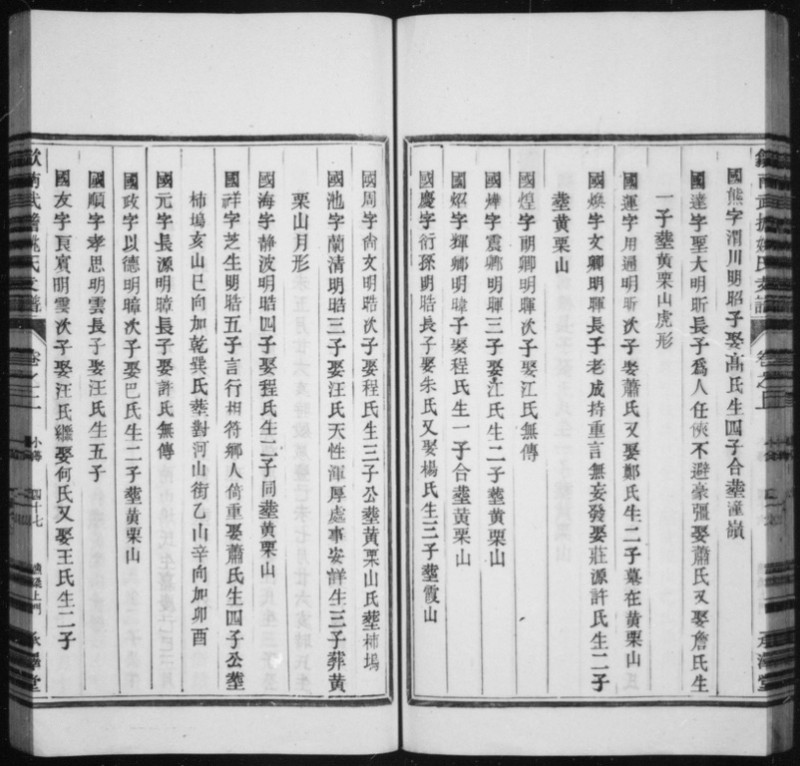 國熊字渭川明昭子娶高氏生四子合塟潼嶺
國達字聖大明昕長子爲人任俠不避豪彊娶蕭氏又娶詹氏生
一子塟黄栗山虎形
國運字用通明昕次子娶蕭氏又娶鄭氏生二子墓在黄栗山
國煥字文卿明暉長子老成持重言無妄發娶莊源許氏生二子
塟黄栗山
國煌字朗卿明暉次子娶江氏無傳
國燁字震卿明暉三子娶江氏生二子塟黄栗山
國炤字輝卿明暐子娶程氏生一子合塟黄栗山
國慶字衍孫明晧長子娶朱氏又娶楊氏生三子塟霞山
國周字尙文明晧次子娶程氏生三子公塟黄栗山氏塟柿塢
國池字蘭清明晧三子娶汪氏天性渾厚處事安詳生三子葬黄
栗山月形
國海字静波明晧四子娶程氏生二子同塟黄栗山
國祥字芝生明晧五子言行相符鄉人倚重娶蕭氏生四子公塟
柿塢亥山巳向加乾巽氏葬對河山街乙山辛向加卯酉
國元字長源明暲長子娶許氏無傳
國政字以德明暲次子娶巴氏生二子塟黄栗山
國順字孝思明雲長子娶汪氏生五子
國友字良賓明雲次子娶汪氏繼娶何氏又娶王氏生二子
卷之二 小傳 四十七 承澤堂